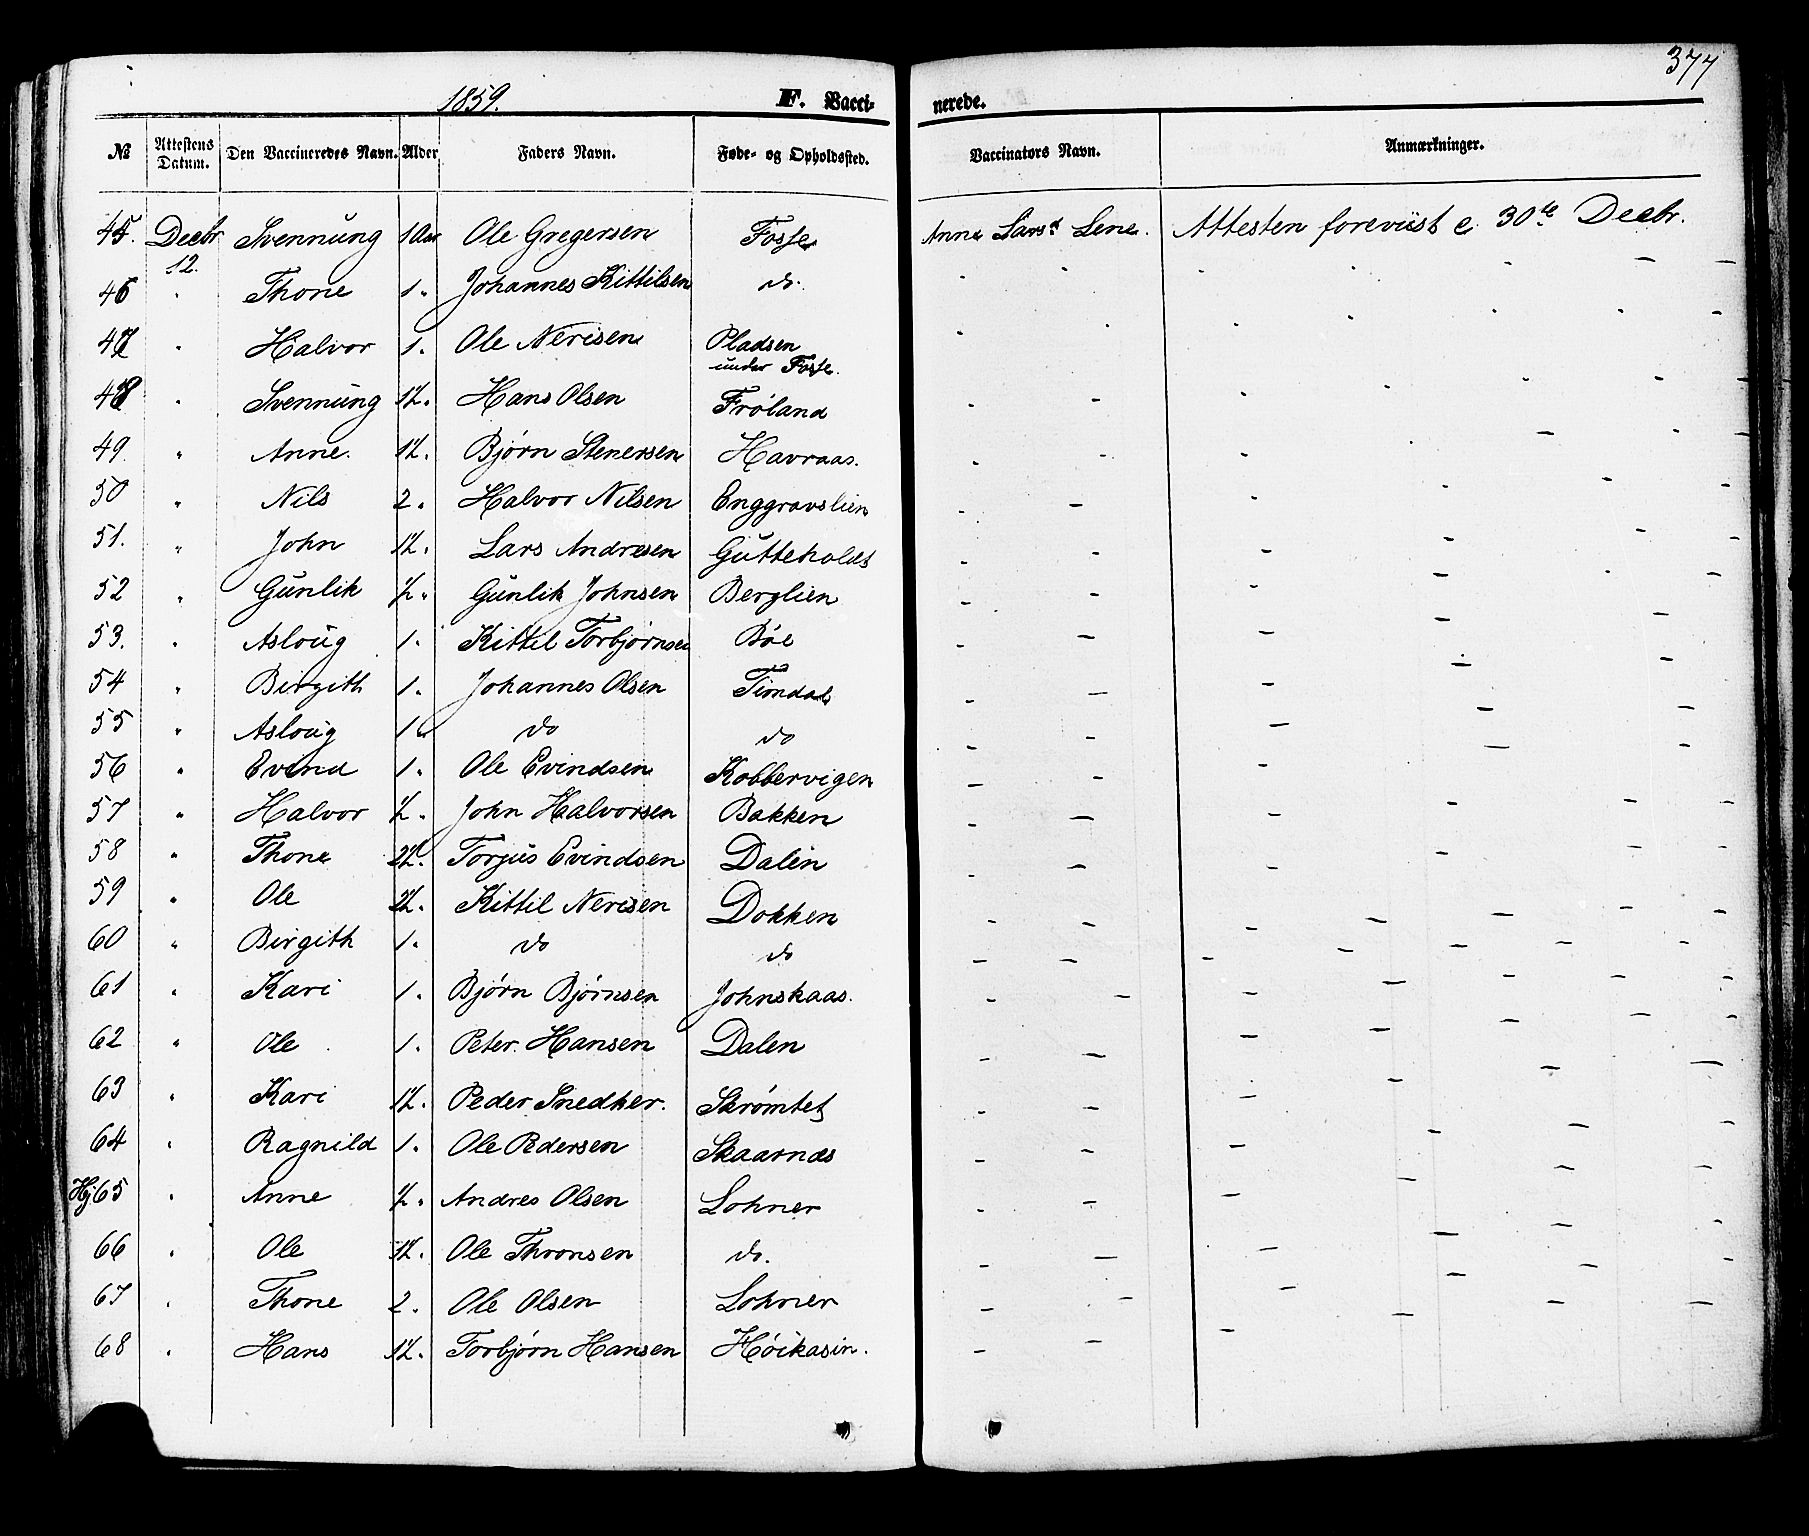 377
1859. F. Vacci- nerede.
№ Attestens Datum. Den Vaccineredes Navn. Alder Faders Navn. Føde- og Opholdssted. Vaccinators Navn. Anmærkninger.
45. Decbr 12. Svennung 1 Aar Ole Gregersen Fosse Anne Larsd Lene. Attesten foreviist 30te Decbr.
46 " Thone 1 " Johannes Kittilsen do.
47 " Halvor 1 " Ole Nerisen Pladsen under Fosse.
48 " Svennung 1½ " Hans Olsen Frøland
49 " Anne. 1½ " Bjørn Stenersen Havraas.
50 " Nils 2 " Halvor Nilsen Enggravslien
51. " John 1½ " Lars Andresen Gutteholdt
52 " Gunlik ½ " Gunlik Johnsen Berglien
53. " Asloug 1 " Kittil Torbjørnsen Bøe
54 " Birgith 1 " Johannes Olsen Timdal
55 " Asloug 1 " do do
56 " Evind 1 " Ole Evindsen Kobbervigen
57 " Halvor ½ " John Halvorsen Bakken
58 " Thone 2½ " Torjus Evindsen Dalen
59 " Ole 2½ " Kittil Nerisen Dokken
60 " Birgith 1 " do do
61 " Kari 1 " Bjørn Bjørnsen Johnskaas.
62 " Ole 1 " Peter Hansen Dalen
63 " Kari 1½ " Peder Snedker. Strømtet
64 " Ragnild 1 " Ole Pedersen Skaarnæs
Hj. 65 " Anne ½ " Andres Olsen Lohner
66 " Ole 1½ " Ole Thronsen do.
67 " Thone 2 " Ole Olsen Lohner
68 " Hans 1½ " Torbjørn Hansen Høikasin.